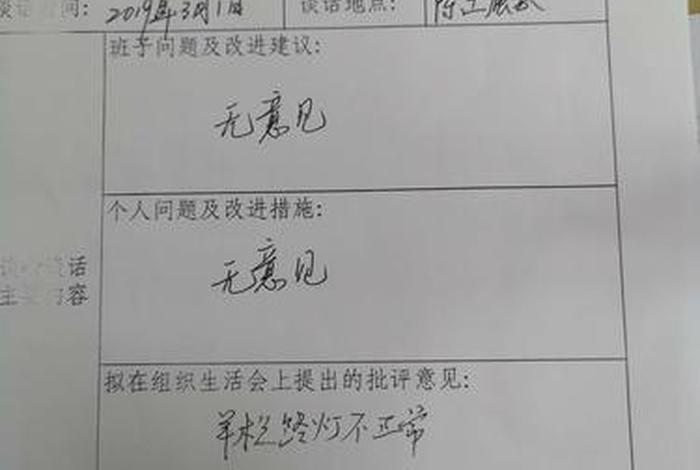 谈话时间: 2019年3月1日 谈话地点:
班子问题及改进建议:
无意见
个人问题及改进措施:
无意见
谈心谈话
主要内容
拟在组织生活会上提出的批评意见:
羊松路灯不正常